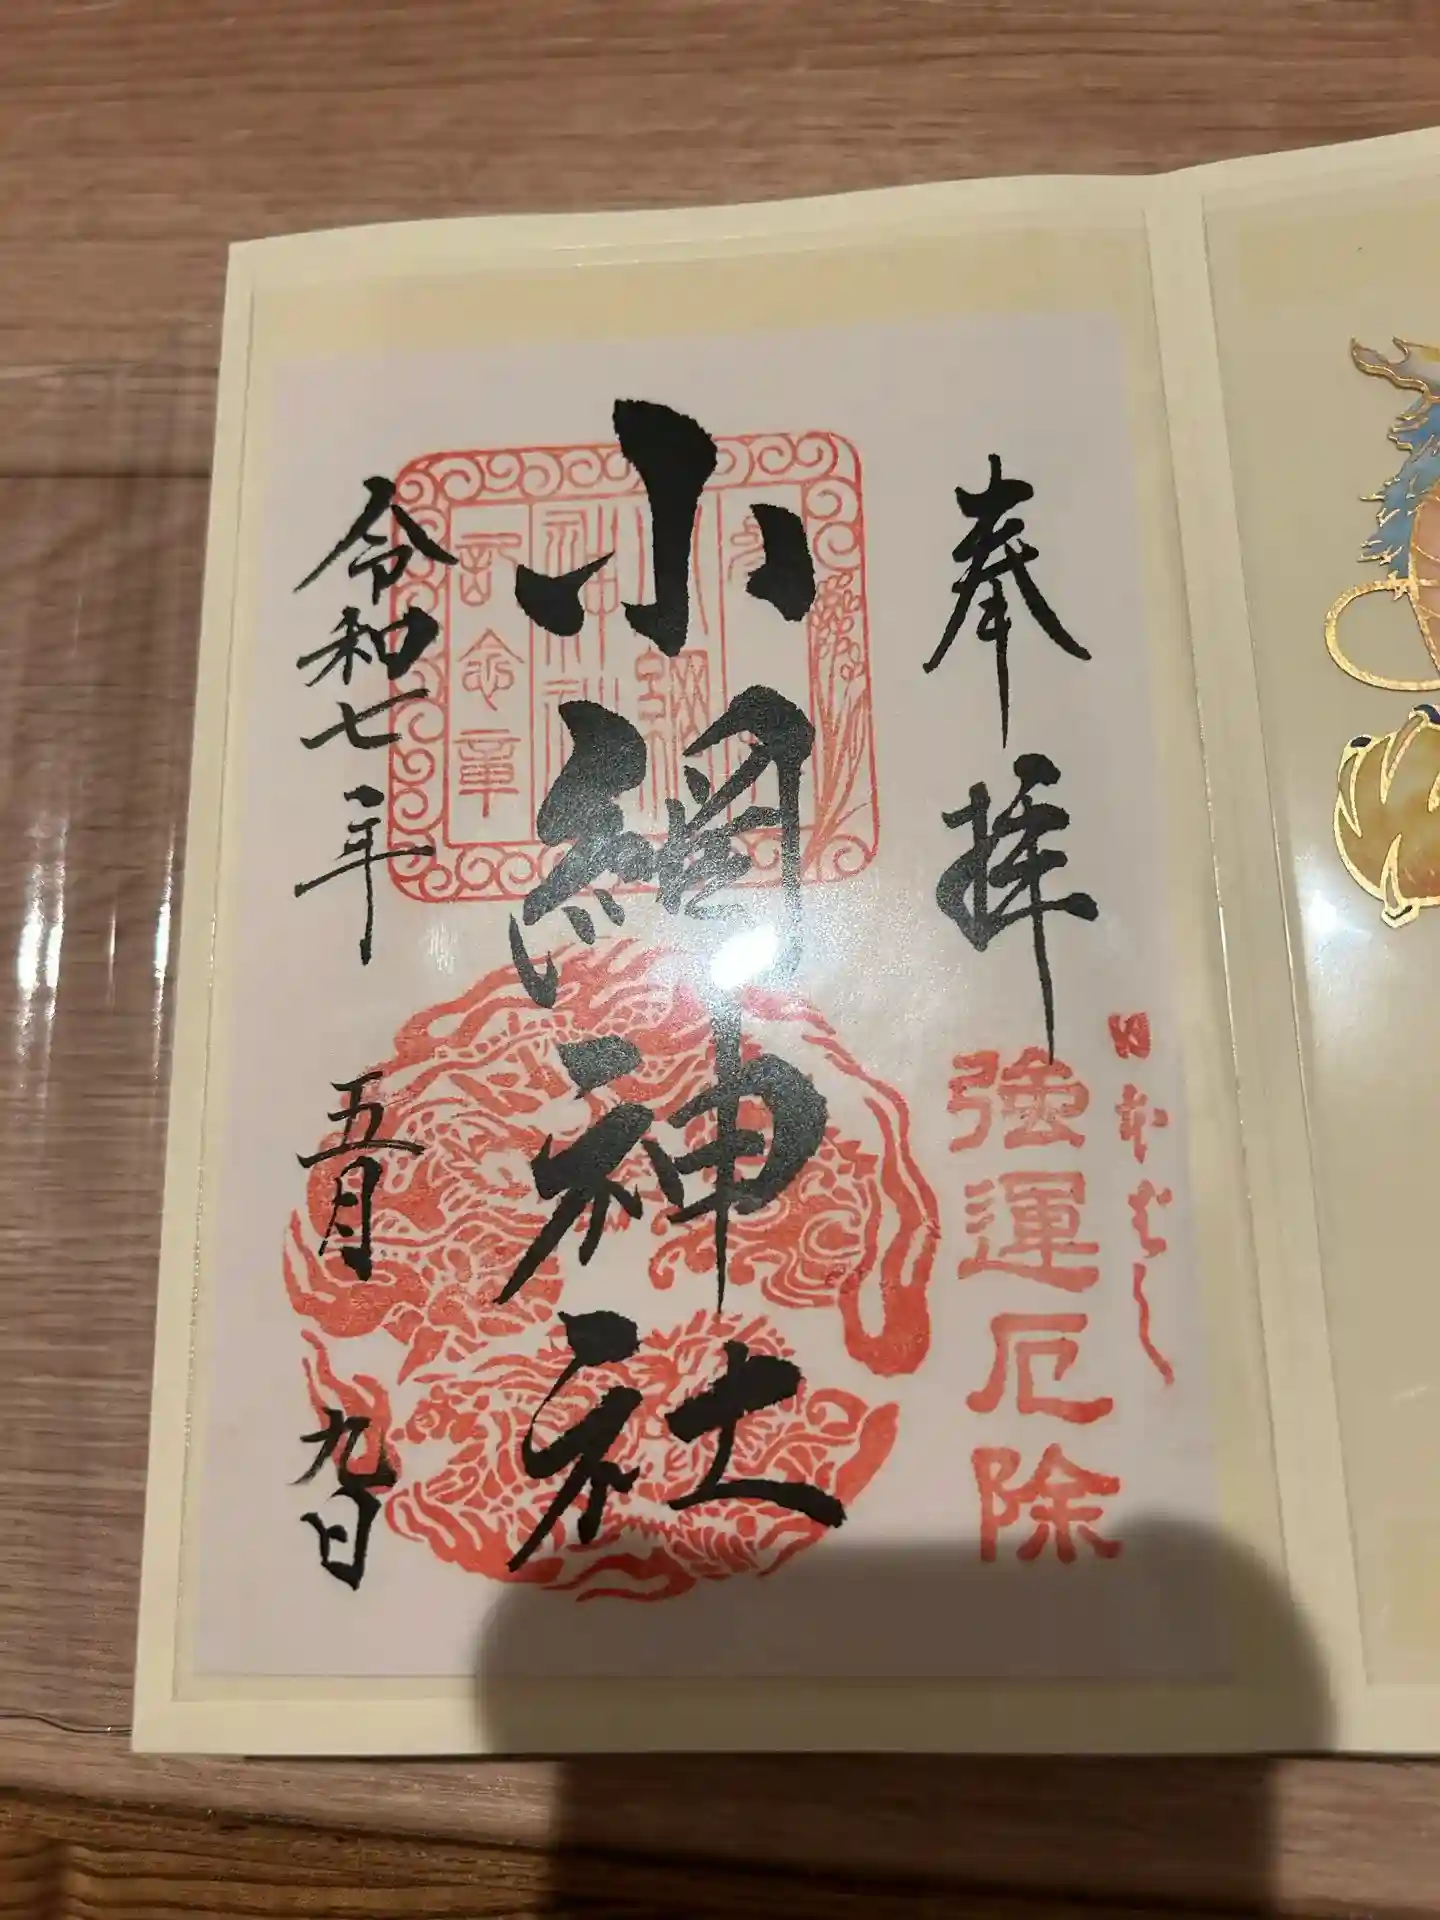 奉拝
日本ばし
強運厄除
小網神社
小網
神社
記念章
令和七年 五月 九日